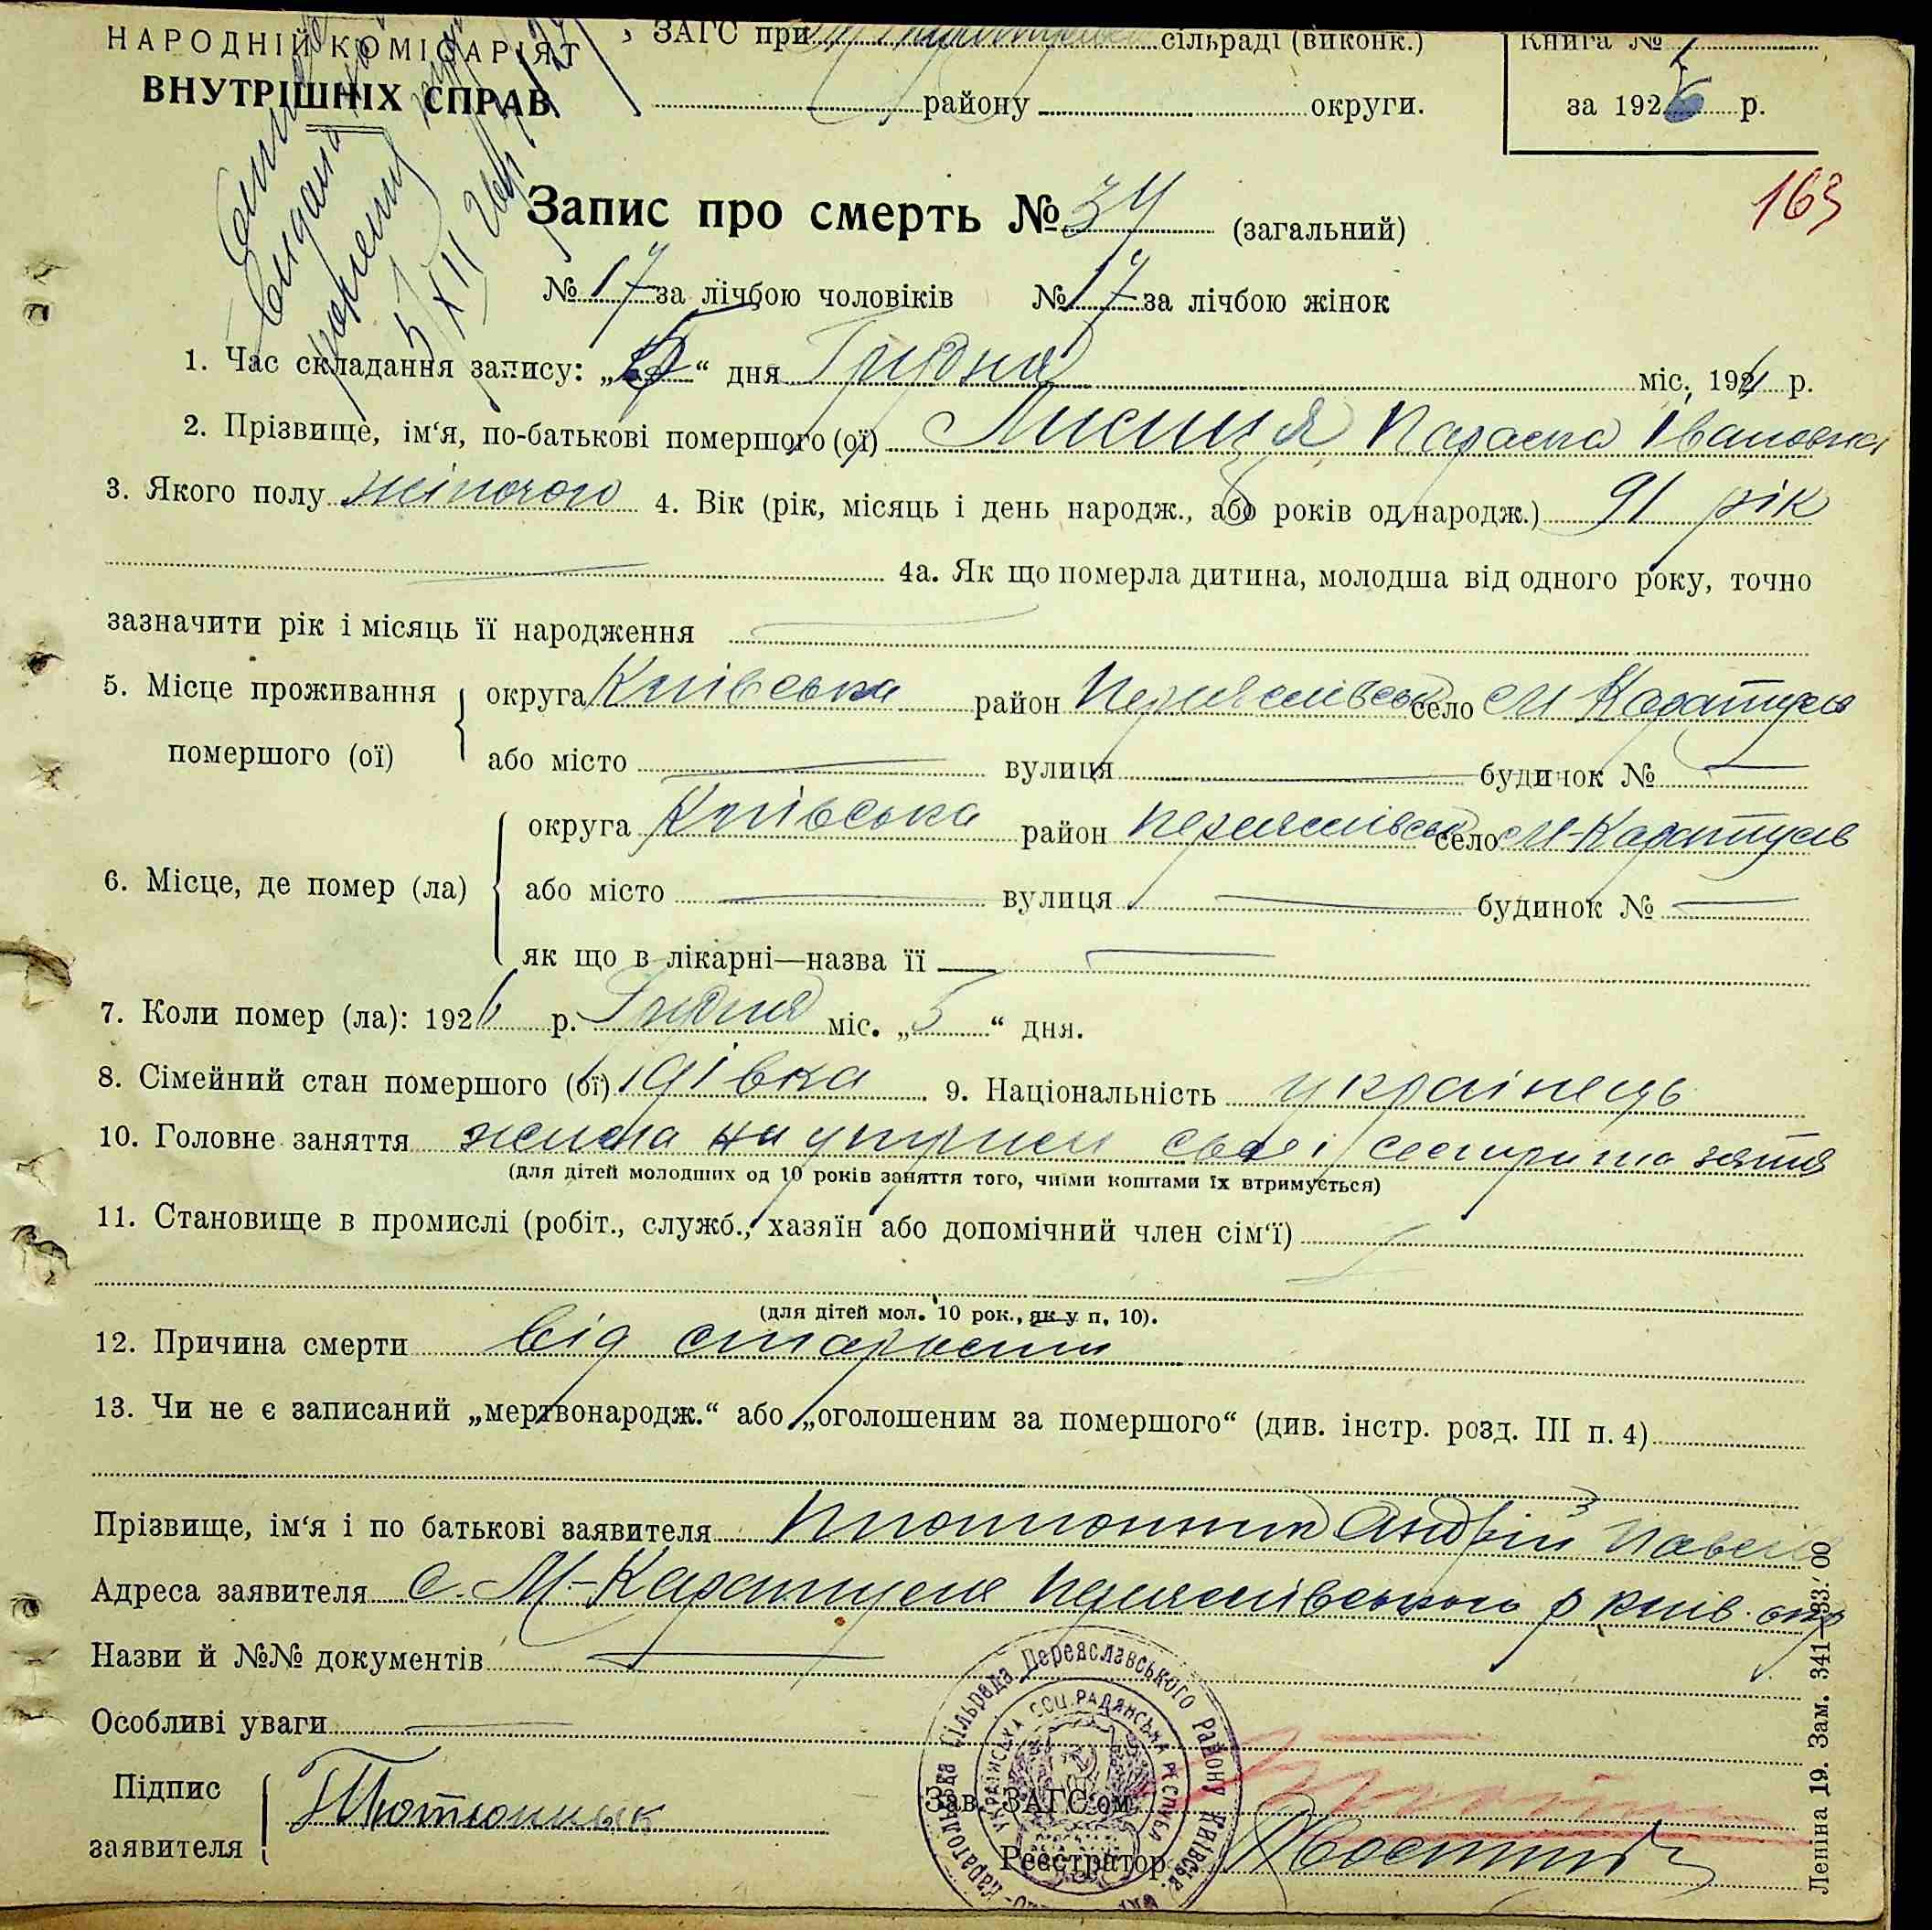 НАРОДНІЙ КОМІСАРІЯТ
ВНУТРІШНІХ СПРАВ
ЗАГС при сільраді (виконк.)
району округи.
Книга №
за 1926 р.
163
Запис про смерть № 34 (загальний)
№ 17 за лічбою чоловіків № 17 за лічбою жінок
1. Час складання запису: „ “ дня Грудня міс. 192 р.
2. Прізвище, ім‘я, по-батькові помершого (ої) Лисиця Параска Івановна
3. Якого полу жіночого 4. Вік (рік, місяць і день народж., або років од народж.) 91 рік
4а. Як що померла дитина, молодша від одного року, точно
зазначити рік і місяць її народження
5. Місце проживання помершого (ої) округа Київська район Переяслівськ село М Каратуль
або місто вулиця будинок №
6. Місце, де помер (ла) округа Київська район Переяслівськ село М-Каратуль
або місто вулиця будинок №
як що в лікарні—назва її
7. Коли помер (ла): 1926 р. Грудня міс. „5“ дня.
8. Сімейний стан помершого (ої) удівка 9. Національність українець
10. Головне заняття жила на утриман своєї сестри та зятя
(для дітей молодших од 10 років заняття того, чиїми коштами їх втримується)
11. Становище в промислі (робіт., служб., хазяїн або допомічний член сім‘ї)
(для дітей мол. 10 рок., як у п. 10).
12. Причина смерти від старости
13. Чи не є записаний „мертвонародж.“ або „оголошеним за помершого“ (див. інстр. розд. III п. 4)
Прізвище, ім‘я і по батькові заявителя Тютюнник Андрій Павел
Адреса заявителя с. М-Каратуля Переяслівського р Київ. окр
Назви й №№ документів
Особливі уваги
Підпис
заявителя Тютюнник
Зав. ЗАГС‘ом
Реєстратор
сільрада Переяславського Району Київськ
УКРАЇНСЬКА СОЦ. РАДЯНСЬКА РЕСПУБЛ
Леніна 19. Зам. 341—33.‘00